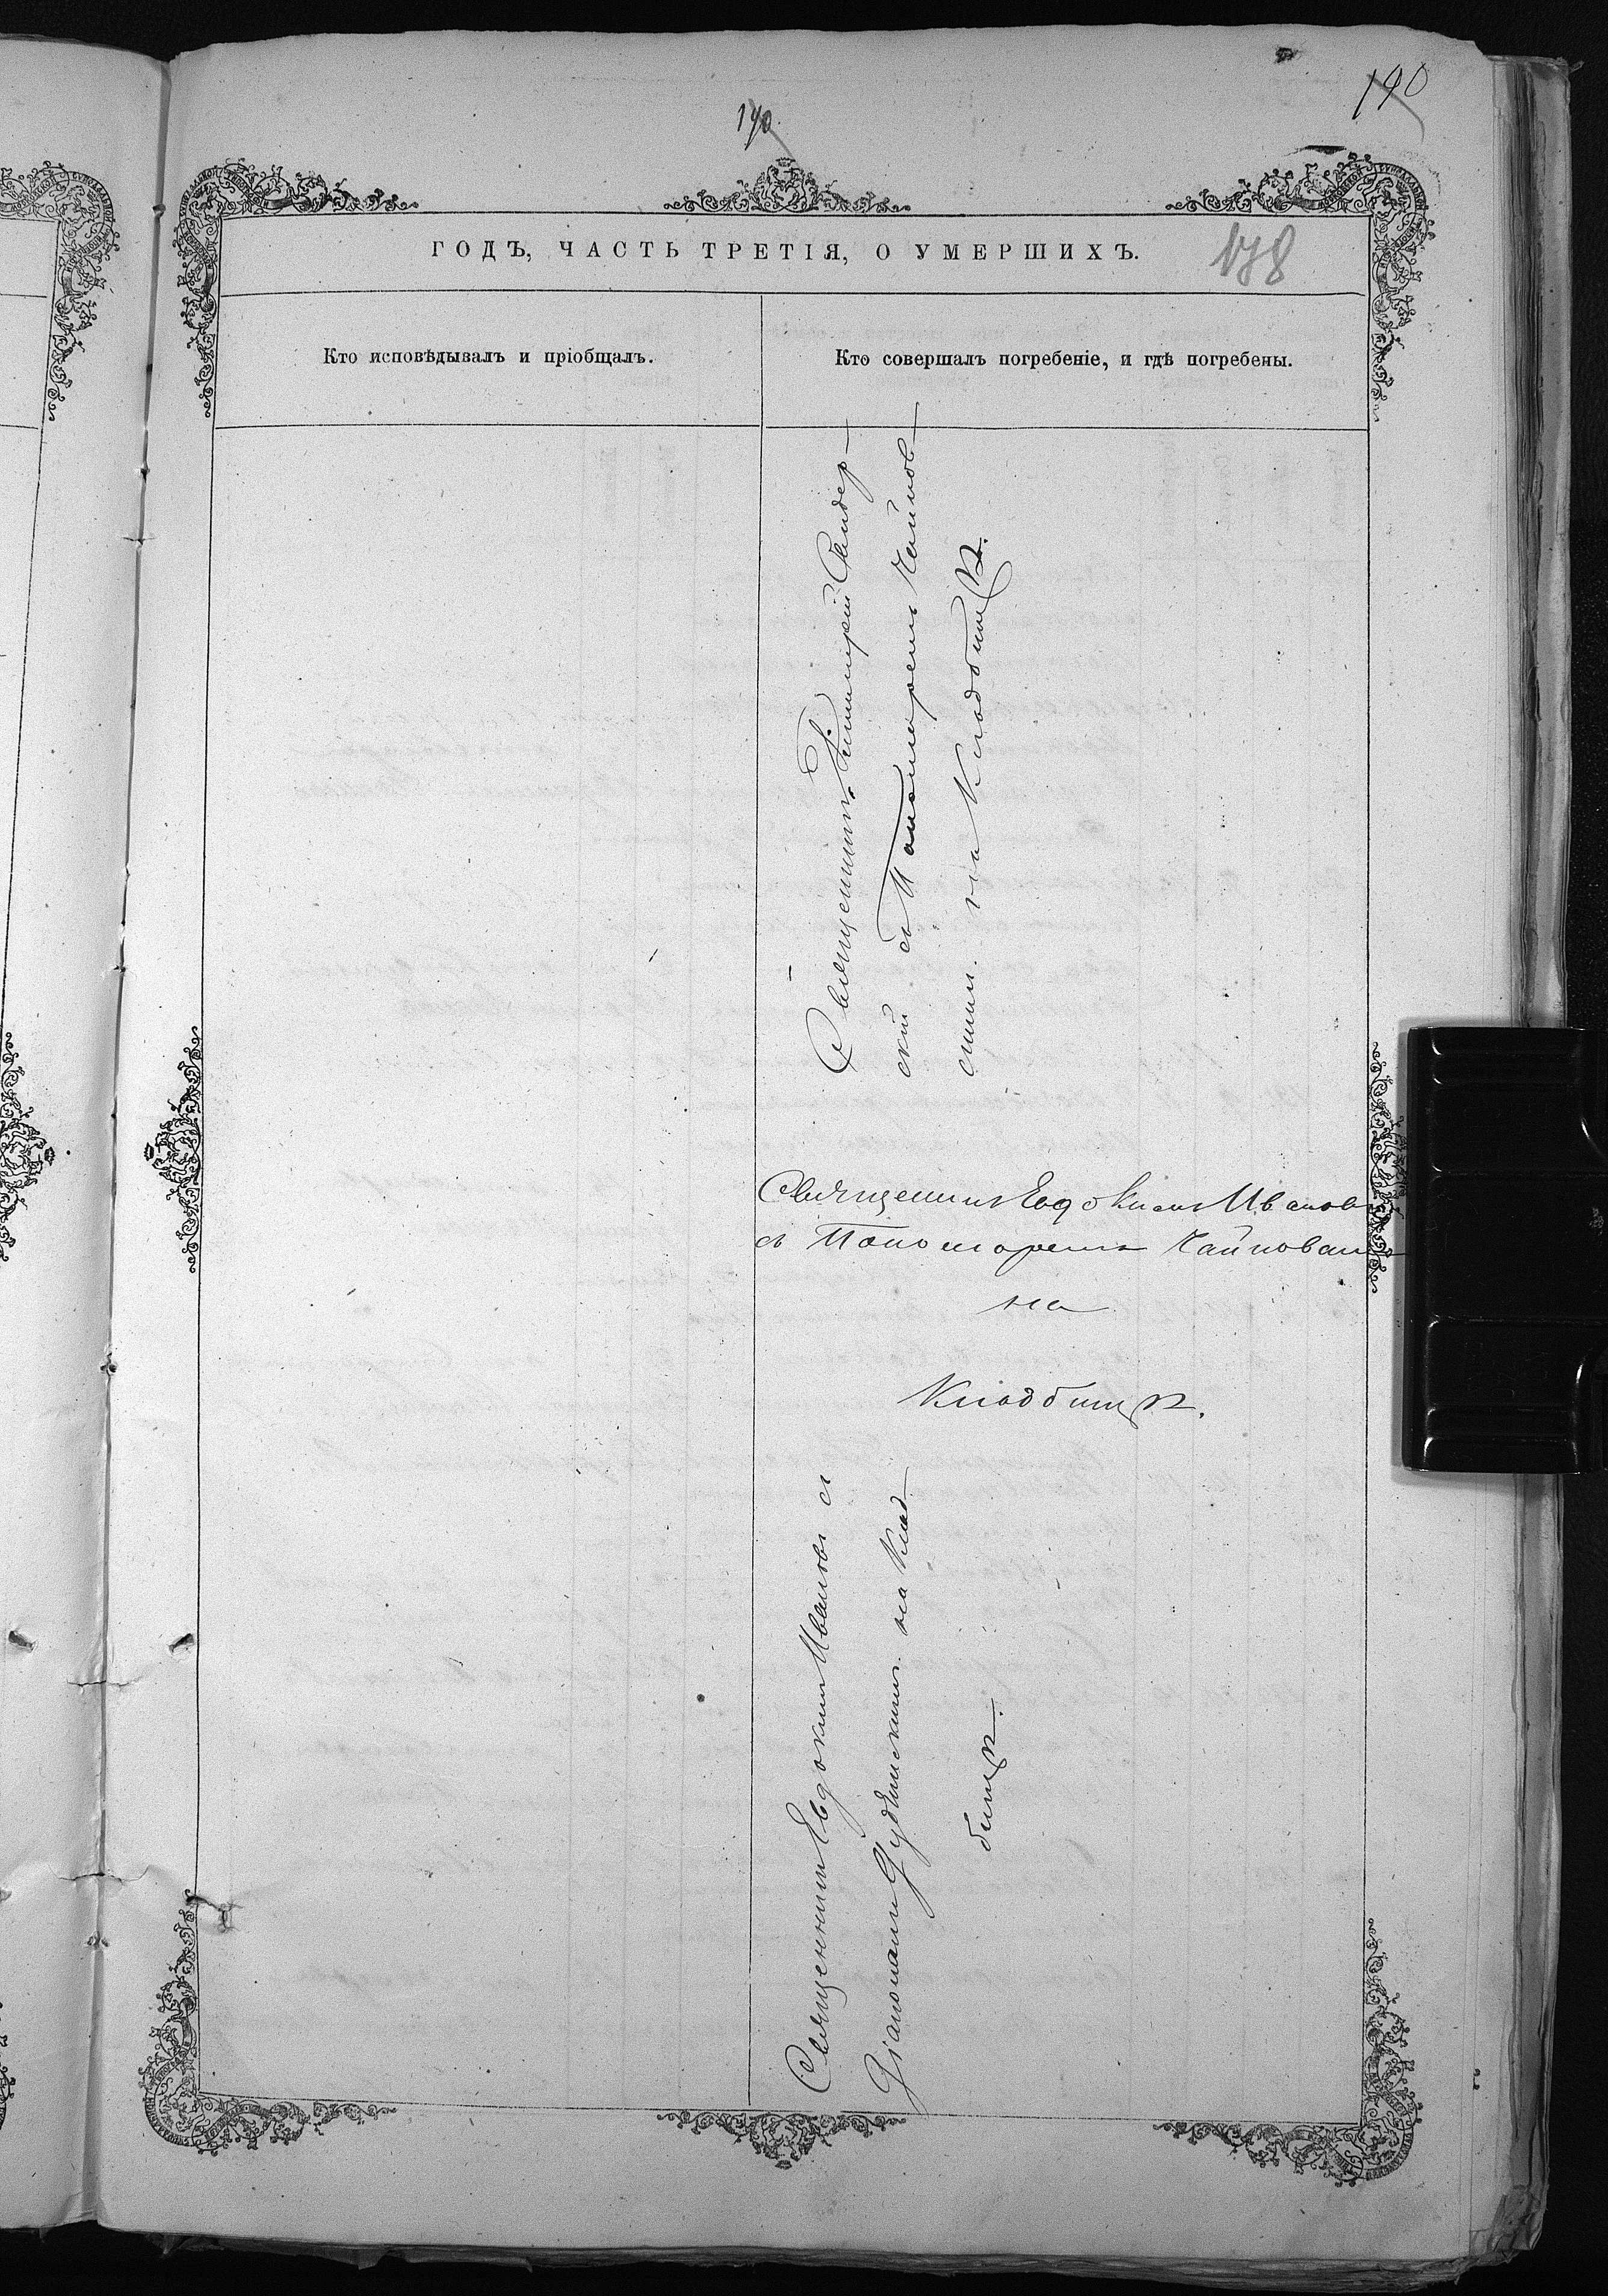 190
190
ГОДЪ, ЧАСТЬ ТРЕТІЯ, О УМЕРШИХЪ.
178
Кто исповѣдывалъ и пріобщалъ.
Кто совершалъ погребеніе, и гдѣ погребены.
Священник Димитрій Свидер-
скій съ Пономаремъ Чайков-
скимъ на Кладбищѣ.
Священникъ Евдокимъ Ивановъ
съ Пономаремъ
на
Кладбищѣ.
Священникъ Евдоким Ивановъ съ
Діакономъ на Клад-
бищѣ.